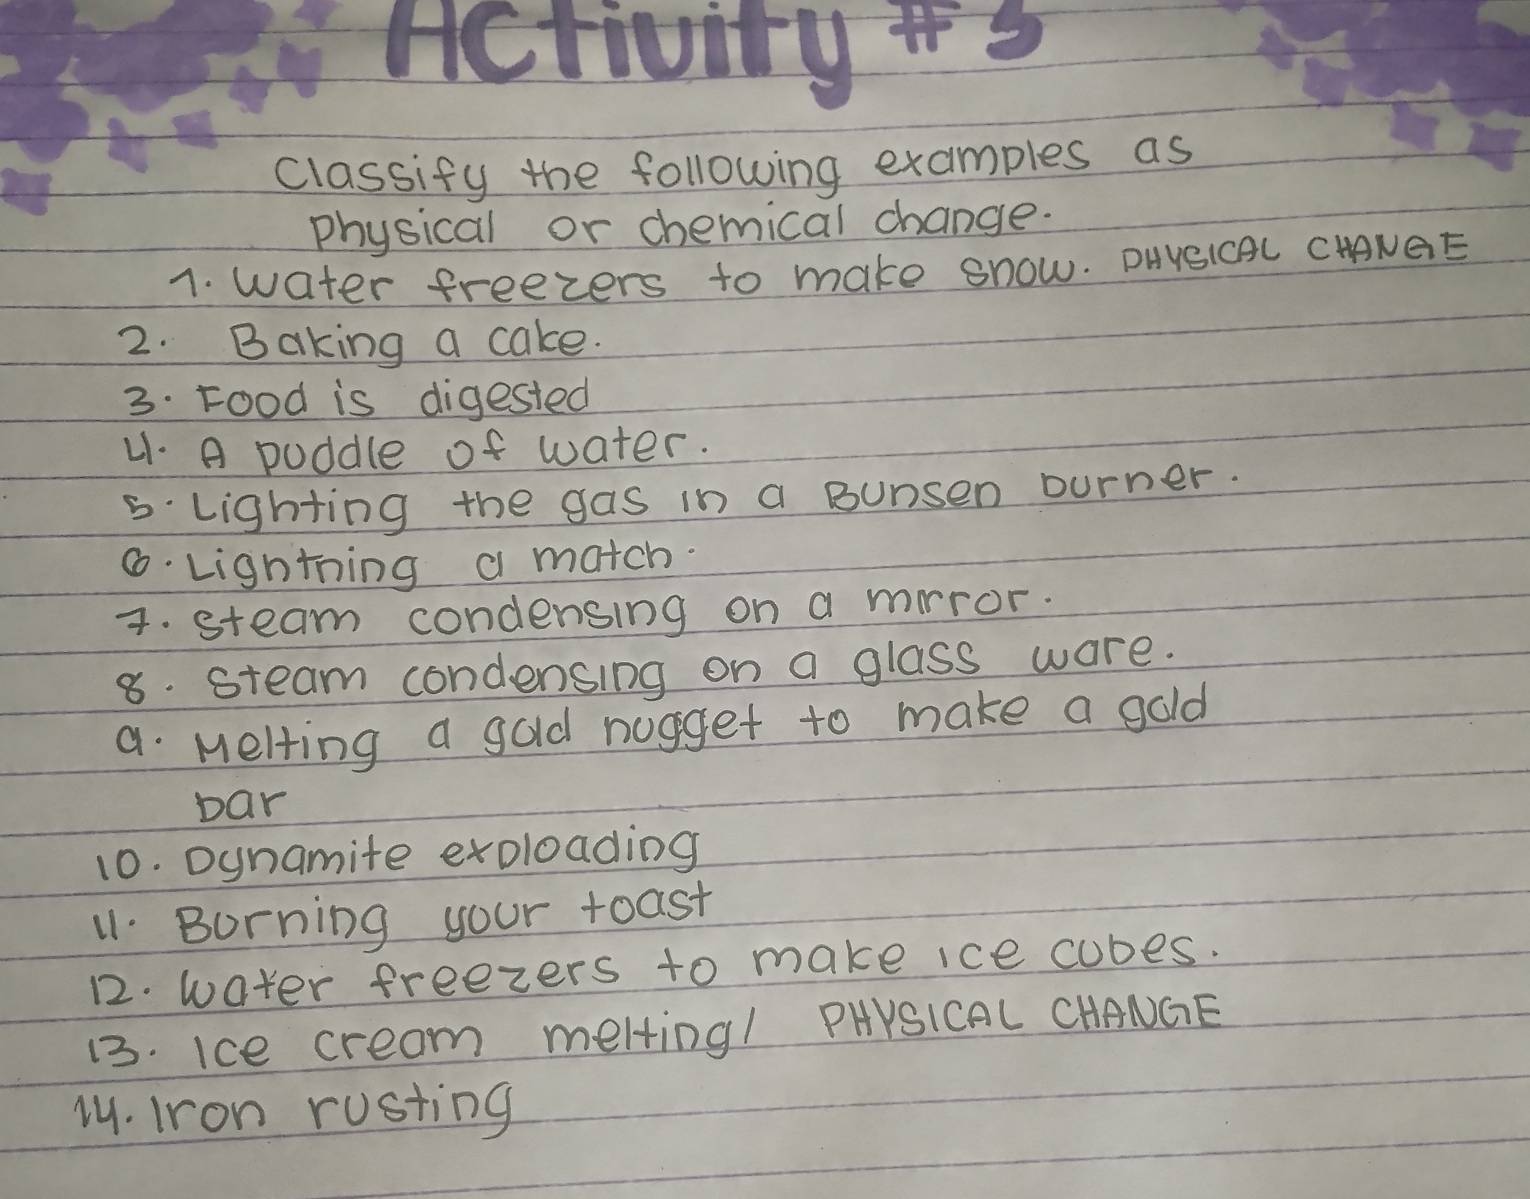 Activity #3
Classify the following examples as
physical or chemical change.
1. Water freezers to make snow. PHYSICAL CHANGE
2. Baking a cake.
3. Food is digested
4. A puddle of water.
5. Lighting the gas in a Bunsen burner.
6. Lightning a match.
7. Steam condensing on a mirror.
8. Steam condensing on a glass ware.
9. Melting a gold nugget to make a gold
bar
10. Dynamite exploading
11. Burning your toast
12. Water freezers to make ice cubes.
13. Ice cream melting/ PHYSICAL CHANGE
14. Iron rusting